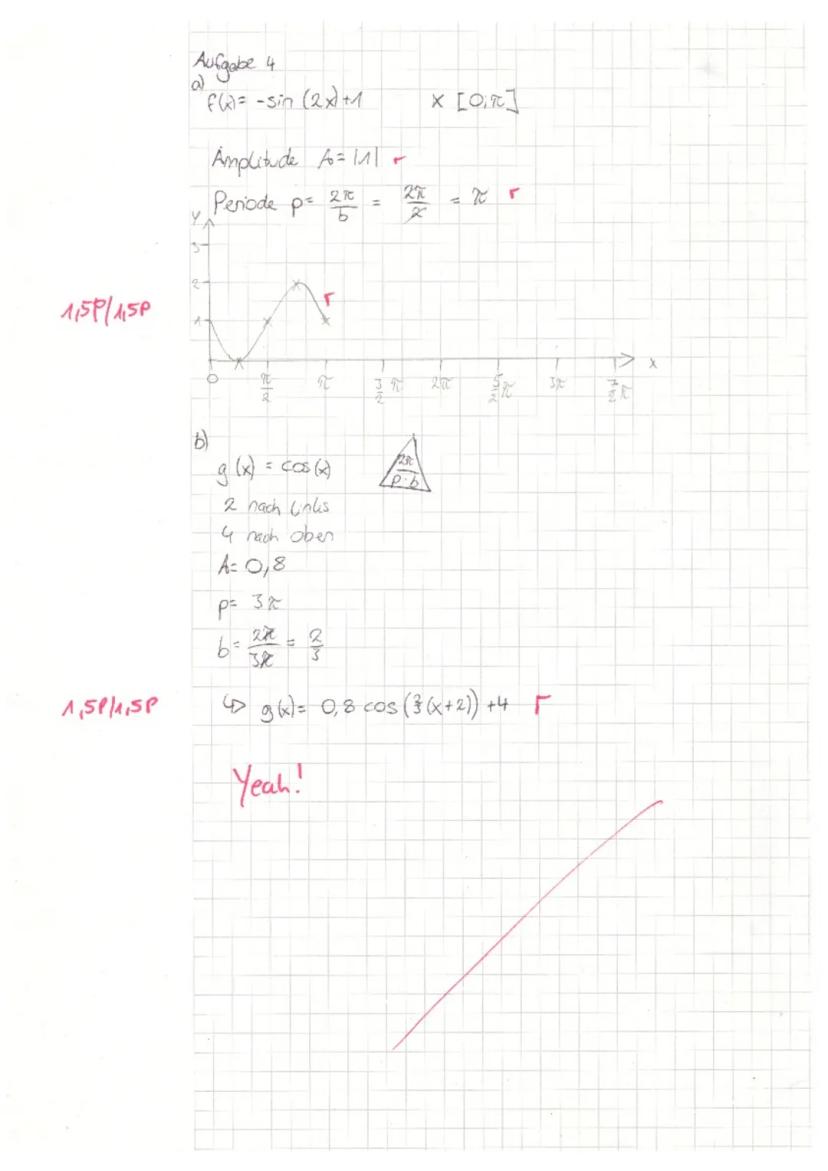 Aufgabe 4
a)
f(x) = -sin (2x)+1 x [0;π]
Amplitude A = |1| r
Periode p = 2π/b = 2π/2 = π r
y
3
2
1
r
1,5P/1,5P
0 π/2 π 3/2 π 2π 5/2 π 3π 7/2 π x
b)
g(x) = cos(x) 2π/p·b
2 nach links
4 nach oben
A = 0,8
p = 3π
b = 2π/3π = 2/3
1,5P/1,5P ↳ g(x) = 0,8 cos (2/3(x+2)) +4 r
Yeah!